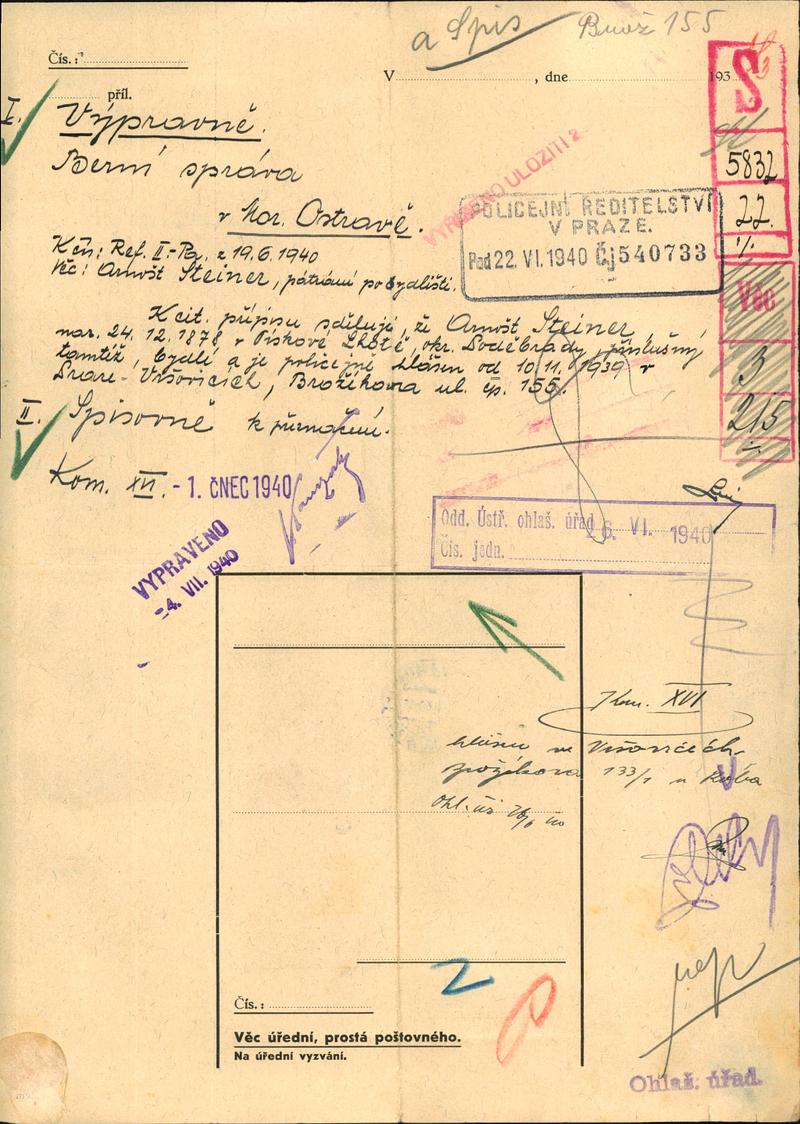 a Spis
155
Čís.:
V , dne 193
příl.
S
I. Výpravně.
5832
Berní správa
VYŘÍZENO ULOŽITI 2
22.
v Mor. Ostravě.
POLICEJNÍ ŘEDITELSTVÍ
V PRAZE.
Pod 22. VI. 1940 Čj 540733
K čn: Ref. II-Pa. z 19.6.1940
Věc: Arnošt Steiner, pátrání po bydlišti.
Věc
K cit. přípisu sděluji, že Arnošt Steiner,
nar. 24. 12. 1878, v Pískové Lhotě, okr. Poděbrady, příslušný
tamtéž, bydlí a je policejně hlášen od 10.11.1939 v
3
Praze-Vršovicích, Brožíkova ul. čp. 155.
215
II. Spisovně k přirnačení.
Kom. XVI. - 1. ČNEC 1940
Odd. Ústř. ohlaš. úřad
6. VI. 1940
Čís. jedn.
VYPRAVENO
-4. VII. 1940
Kom. XVI
hlášen ve Vršovicích
133/1 u
Ohl. úř.
2
Čís.:
Věc úřední, prostá poštovného.
Na úřední vyzvání.
Ohlaš. úřad.